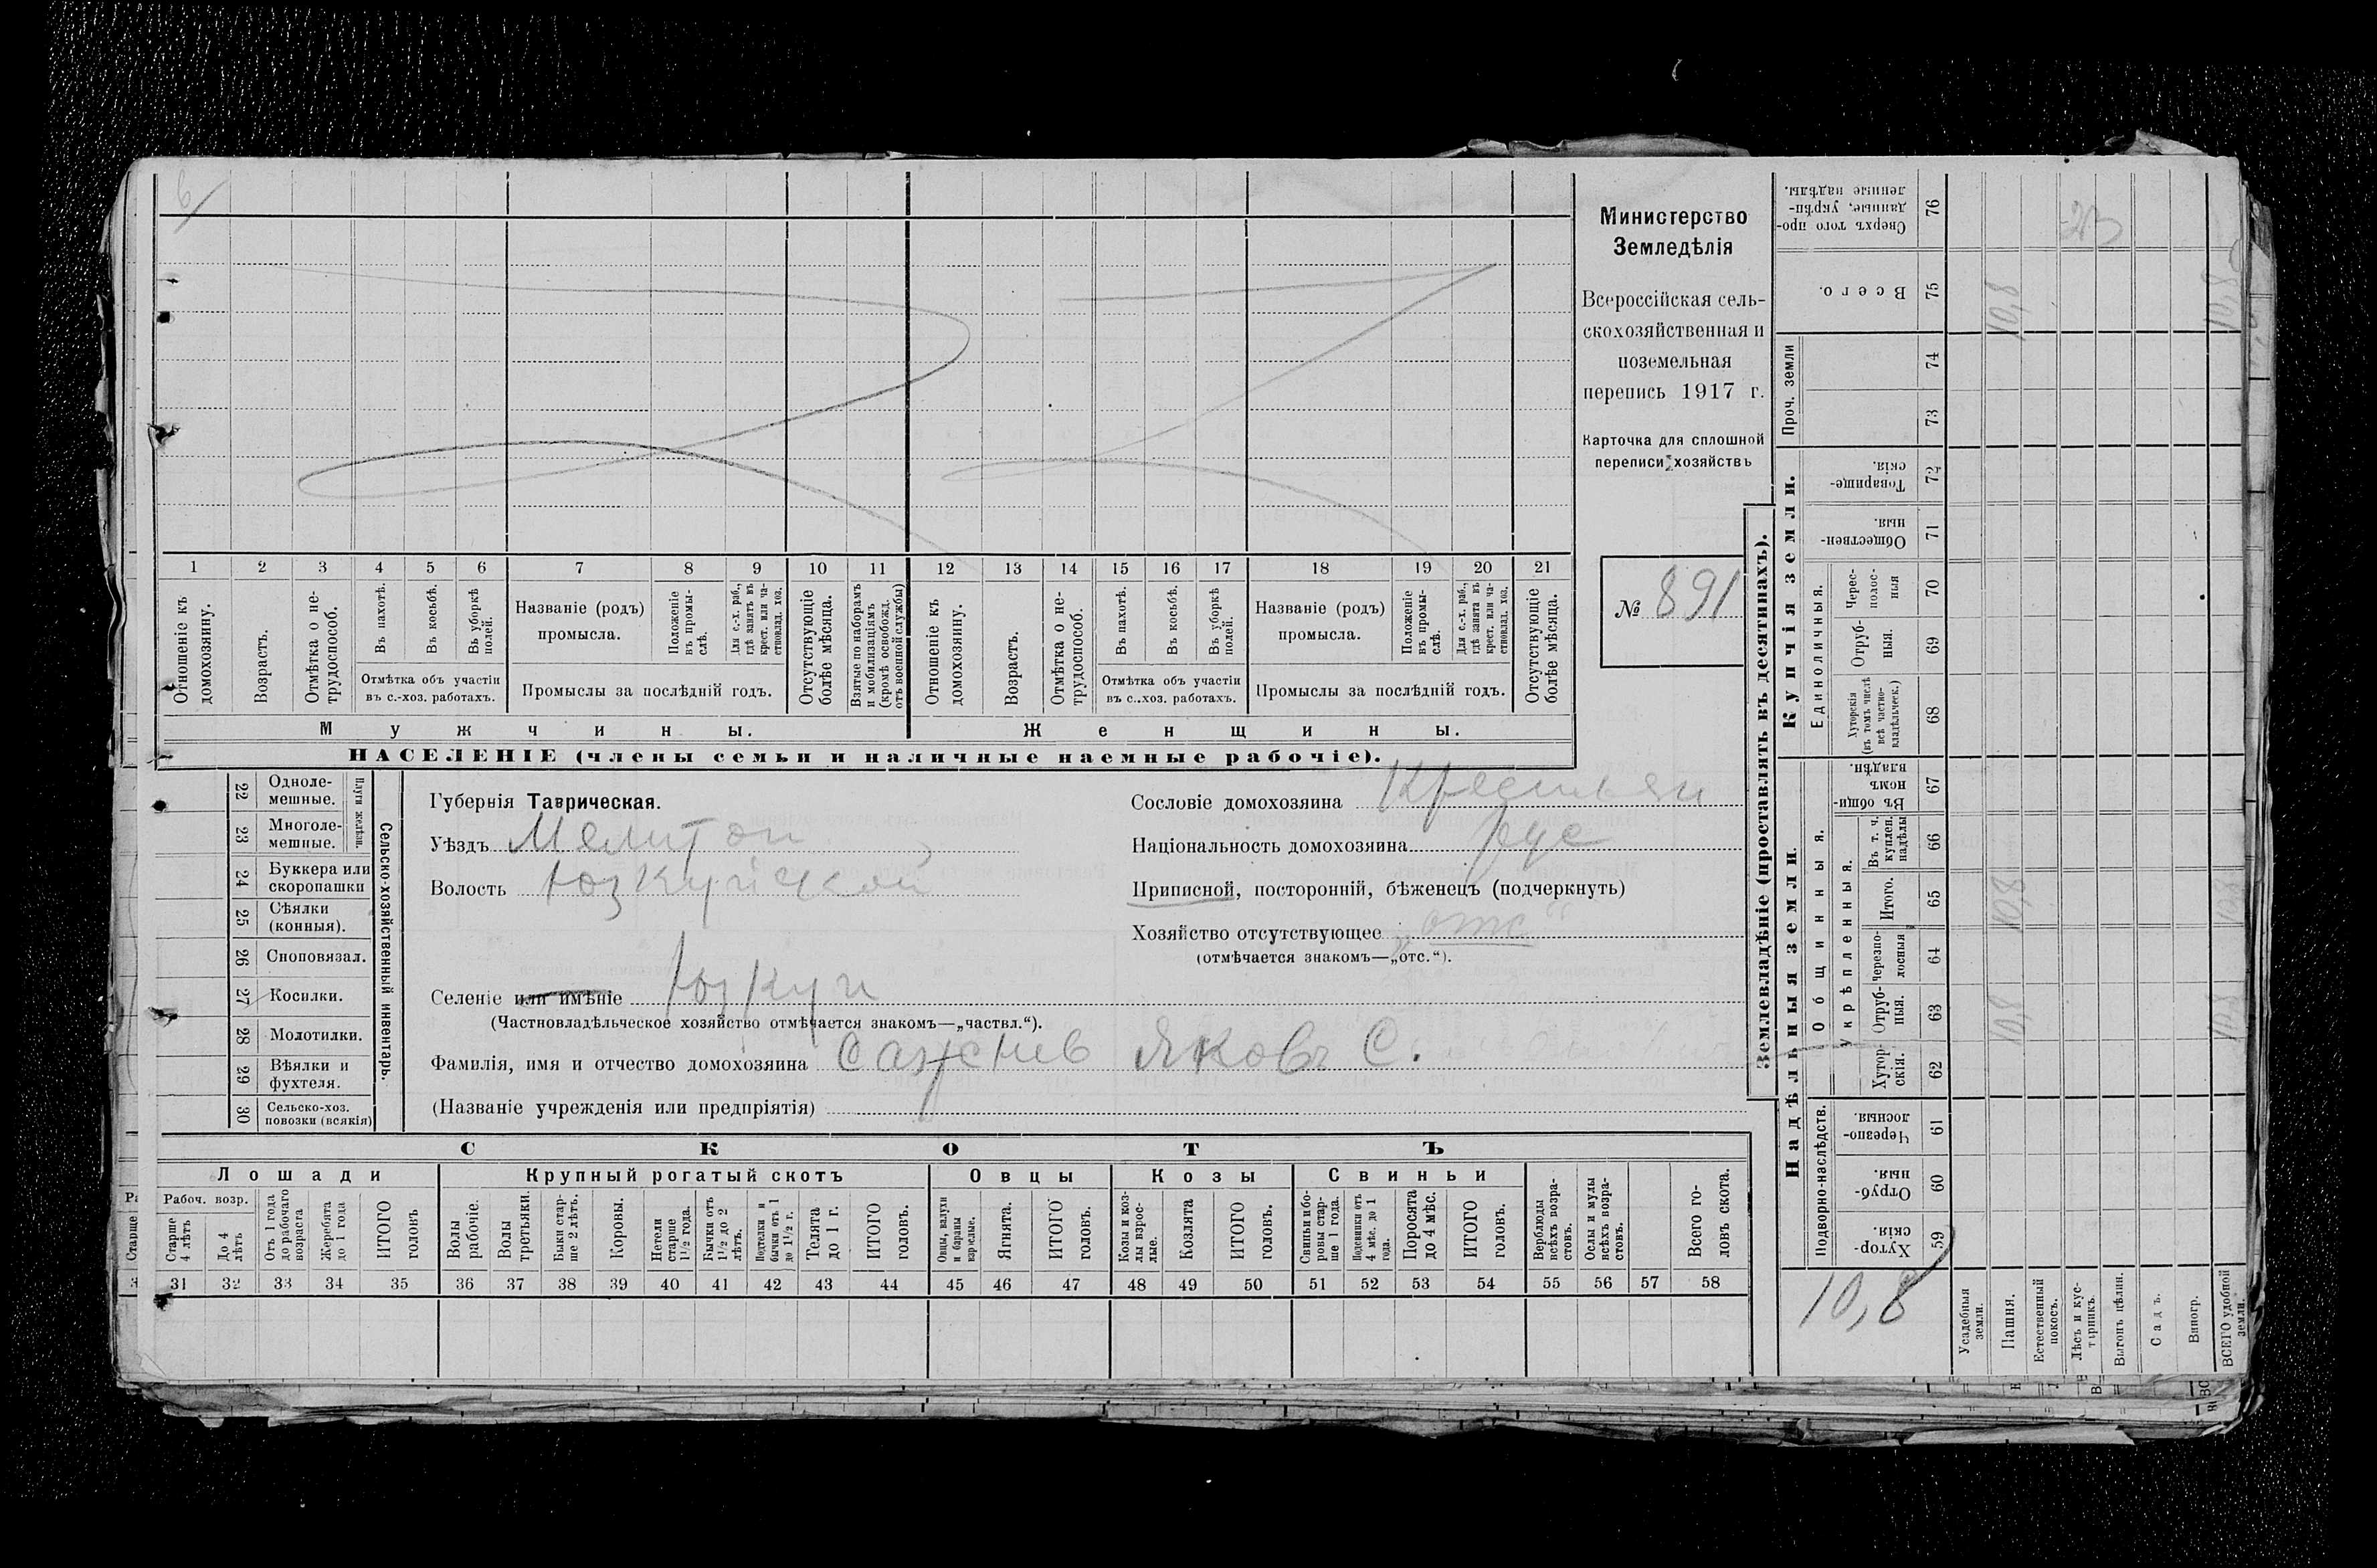 6/
1 2 3 4 5 6 7 8 9 10 11 12 13 14 15 16 17 18 19 20 21
Отношеніе къ домохозяину.
Возрастъ.
Отмѣтка о не-
трудоспособ.
Въ пахотѣ.
Въ косьбѣ.
Въ уборкѣ
полей.
Отмѣтка объ участіи
въ с.-хоз. работахъ.
Названіе (родъ)
промысла.
Положеніе
въ промы-
слѣ.
Для с.-х. раб.,
гдѣ занятъ въ
крест. или ча-
стновлад. хоз.
Промыслы за послѣдній годъ.
Отсутствующіе
болѣе мѣсяца.
Взятые по наборамъ
и мобилизаціямъ
(кромѣ освобожд.
отъ военной службы)
Отношеніе къ
домохозяину.
Возрастъ.
Отмѣтка о не-
трудоспособ.
Въ пахотѣ.
Въ косьбѣ.
Въ уборкѣ
полей.
Отмѣтка объ участіи
въ с..хоз. работахъ.
Названіе (родъ)
промысла.
Положеніе
въ промы-
слѣ.
Для с.-х. раб.,
гдѣ занята въ
крест. или ча-
стновлад. хоз.
Промыслы за послѣдній годъ.
Отсутствующіе
болѣе мѣсяца.
Мужчины. Женщины.
НАСЕЛЕНІЕ (члены семьи и наличные наемные рабочіе).
Министерство
Земледѣлія
Всероссійская сель-
скохозяйственная и
поземельная
перепись 1917 г.
Карточка для сплошной
переписи хозяйствъ
№ 891
22 Одноле-
мешные.
23 Многоле-
мешные.
Плуги желѣзн.
24 Буккера или
скоропашки
25 Сѣялки
(конныя).
26 Сноповязал.
27 Косилки.
28 Молотилки.
29 Вѣялки и
фухтеля.
30 Сельско-хоз.
повозки (всякія)
Сельско-хозяйственный инвентарь.
Губернія Таврическая.
Уѣздъ Мелитоп
Волость Юзкуйской
Селеніе или имѣніе Юзкуи
(Частновладѣльческое хозяйство отмѣчается знакомъ—„частвл.“).
Фамилія, имя и отчество домохозяина Сажнев Яковъ С.
(Названіе учрежденія или предпріятія)
Сословіе домохозяина Крестьян
Національность домохозяина рус
Приписной, посторонній, бѣженецъ (подчеркнуть)
Хозяйство отсутствующее „отс“
(отмѣчается знакомъ—„отс.“).
СКОТЪ
Лошади
Рабоч. возр.
Старше
4 лѣтъ
До 4
лѣтъ
Отъ 1 года
до рабочаго
возраста
Жеребята
до 1 года
ИТОГО
головъ
Крупный рогатый скотъ
Волы
рабочіе.
Волы
третьяки.
Быки стар-
ше 2 лѣтъ.
Коровы.
Нетели
старше
1½ года.
Бычки отъ
1½ до 2
лѣтъ.
Подтелки и
бычки отъ 1
до 1½ г.
Телята
до 1 г.
ИТОГО
головъ.
Овцы
Овцы, валухи
и бараны
взрослые.
Ягнята.
ИТОГО
головъ.
Козы
Козы и коз-
лы взрос-
лые.
Козлята
ИТОГО
головъ.
Свиньи
Свиньи и бо-
ровы стар-
ше 1 года.
Подсвинки отъ
4 мѣс. до 1
года.
Поросята
до 4 мѣс.
ИТОГО
головъ.
Верблюды
всѣхъ возра-
стовъ.
Ослы и мулы
всѣхъ возра-
стовъ.
Всего го-
ловъ скота.
31 32 33 34 35 36 37 38 39 40 41 42 43 44 45 46 47 48 49 50 51 52 53 54 55 56 57 58
Землевладѣніе (проставлять въ десятинахъ).
Надѣльныя земли.
Купчія земли.
Проч. земли
Подворно-наслѣдств.
Общинныя.
Укрѣпленныя.
Единоличныя.
Сверхъ того про-
данные, укрѣп-
ленные надѣлы.
76
Всего.
75
74
73
Товарище-
скія.
72
Обществен-
ныя.
71
Черес-
полос-
ныя
70
Отруб-
ныя.
69
Хуторскія
(въ томъ числѣ
всѣ частно-
владѣльческ.)
68
Въ общин-
номъ
владѣн.
67
Въ т. ч.
куплен.
надѣлы
66
Итого.
65
Черезпо-
лосныя
64
Отруб-
ныя.
63
Хутор-
скія.
62
Черезпо-
лосныя.
61
Отруб-
ныя.
60
Хутор-
скія.
59
10,8
Усадебныя
земли.
Пашня.
Естественный
покосъ.
Лѣсъ и кус-
тарникъ.
Выгонъ цѣлин.
Садъ.
Виногр.
ВСЕГО удобной
земли.
10,8
10,8
10,8
10,8
10,8
10,8